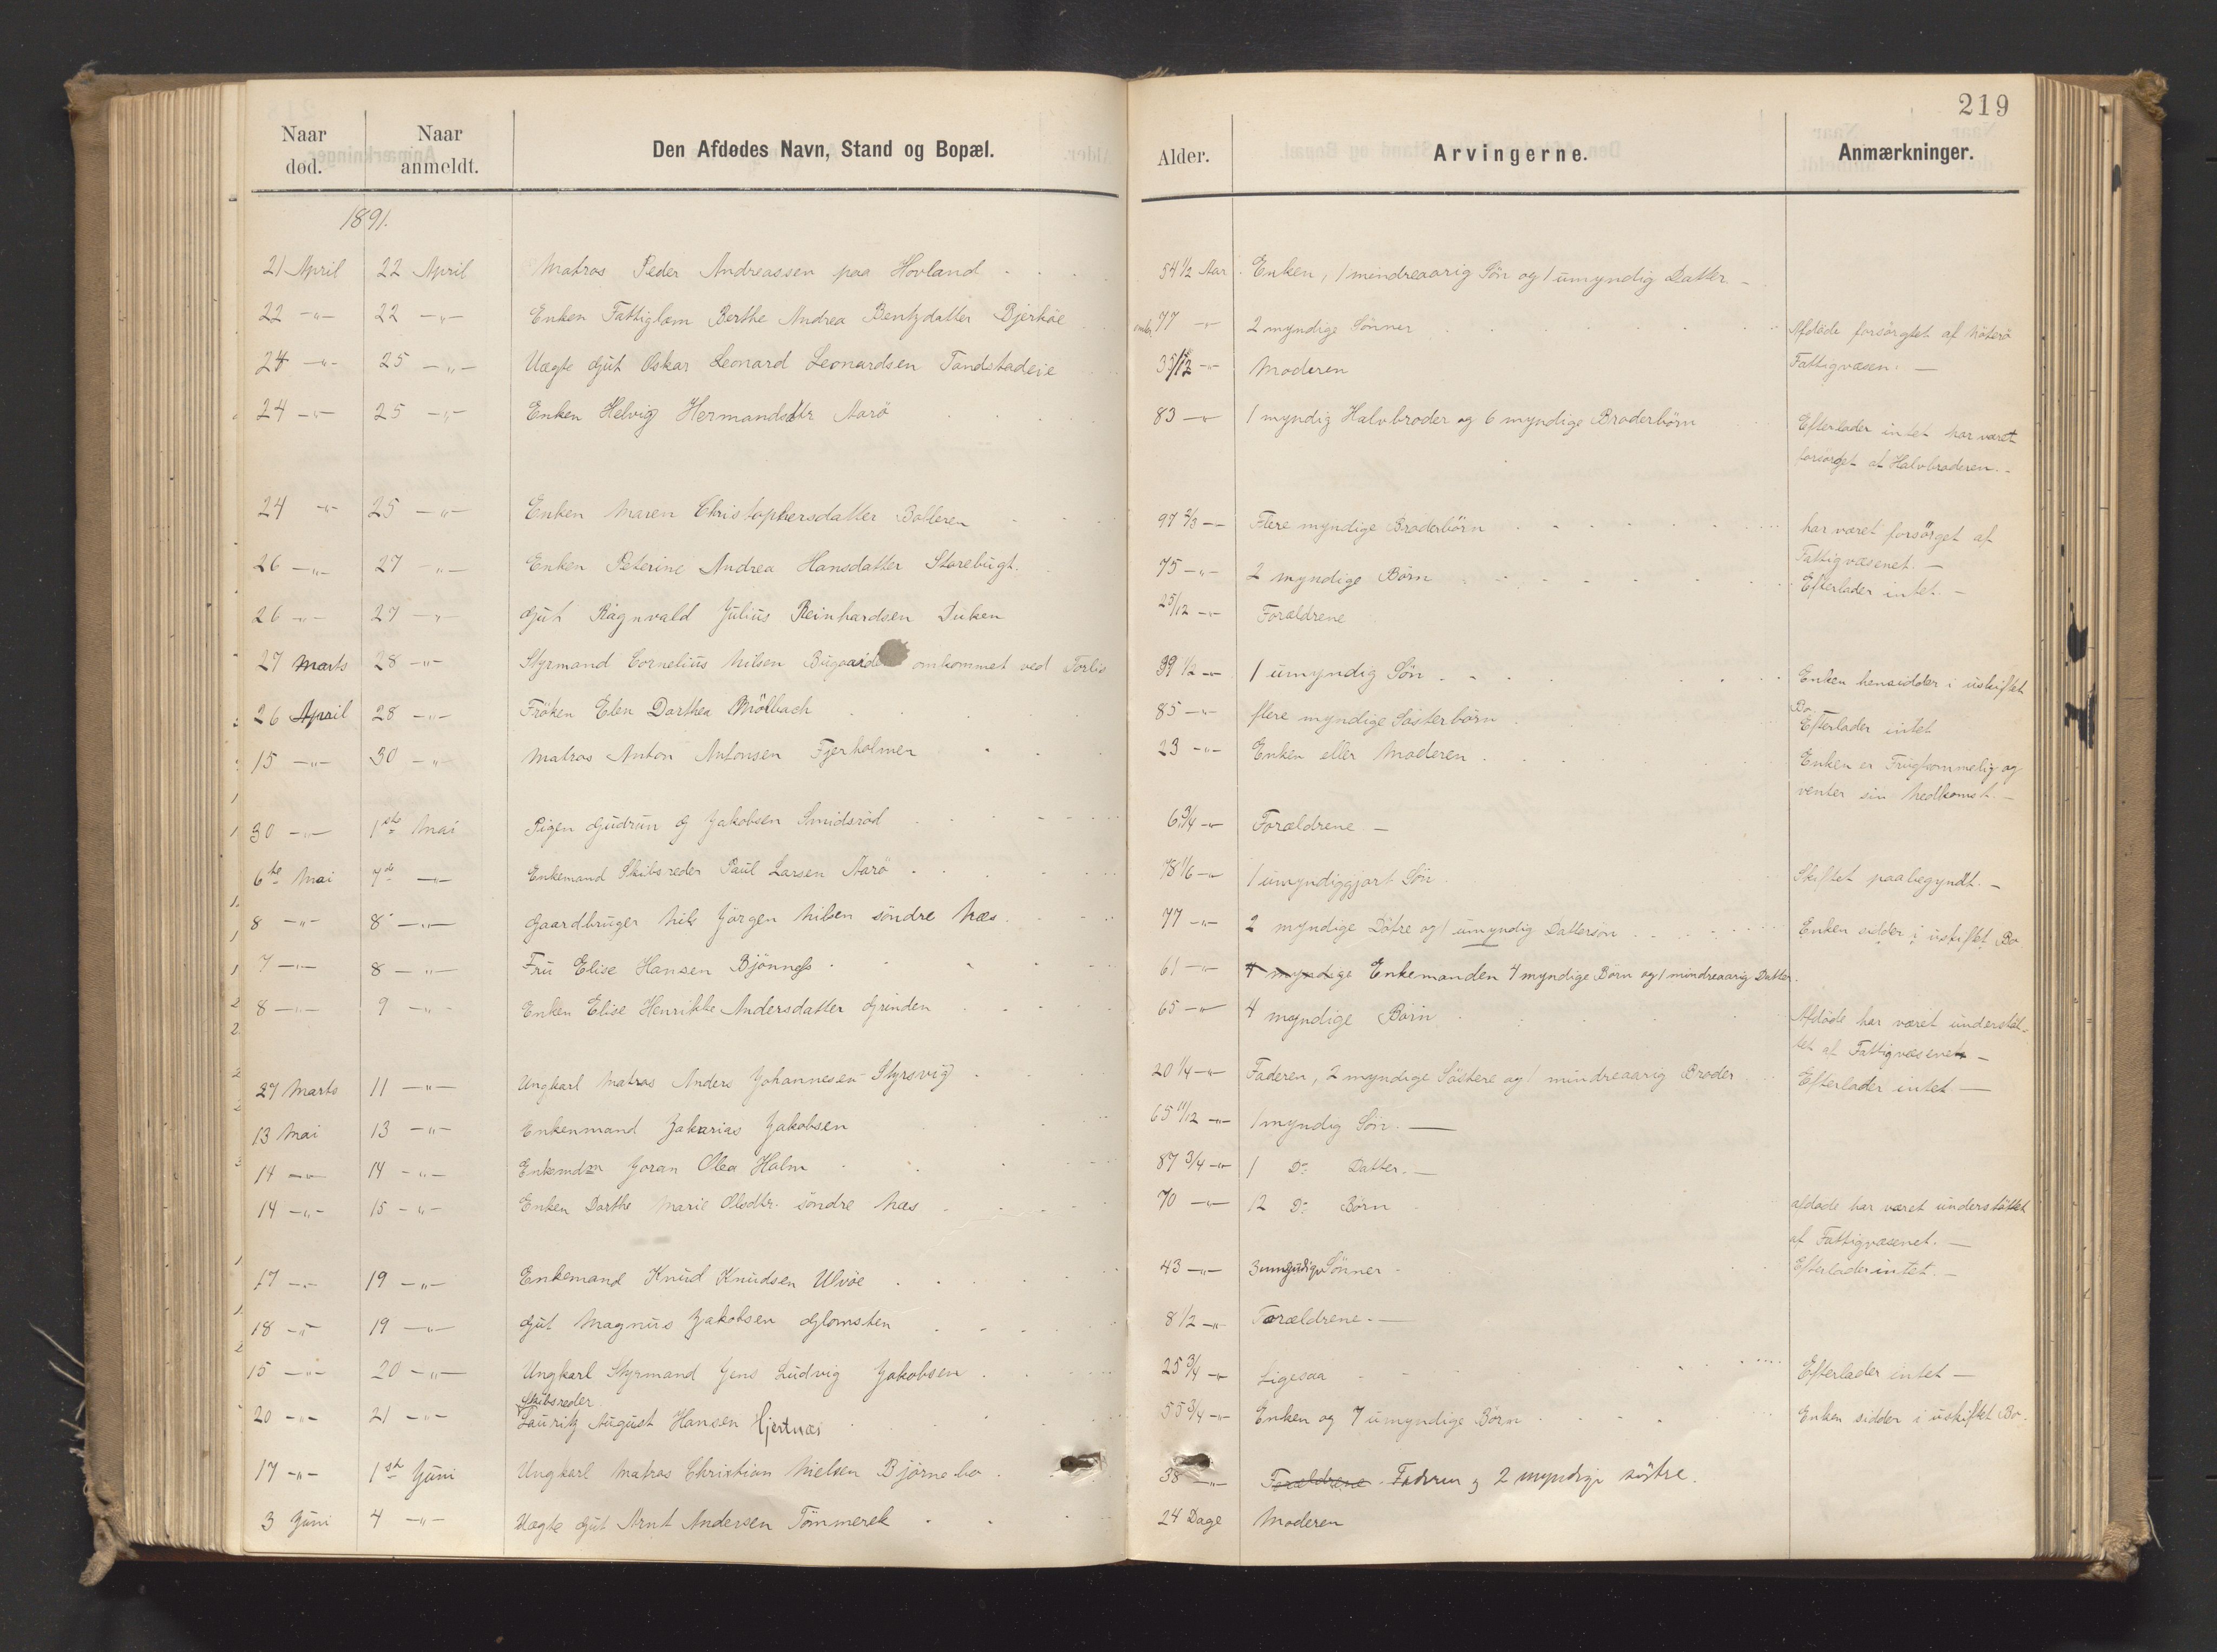 219
Naar død. Naar anmeldt. Den Afdødes Navn, Stand og Bopæl. Alder. Arvingerne. Anmærkninger.
1891.
21 April 22 April Matros Peder Andreassen paa Hovland 54 1/2 Aar Enken, 1 mindreaarig Sön og 1 umyndig Datter. -
22 -"- 22 -"- Enken Fattiglem Berthe Andrea Bentzdatter Bjerköe 77 -"- 2 myndige Sönner Afdöde forsörgtet af Nöterö
24 -"- 25 -"- Uægte Gut Oskar Leonard Leonardsen Tandstadeie 3 5/12 -"- Moderen Fattigvæsen. -
24 -"- 25 -"- Enken Helvig Hermandsdtr Aarö 83 -"- 1 myndig Halvbroder og 6 myndige Broderbörn Efterlader intet har været
forsörget af Halvbroderen. -
24 -"- 25 -"- Enken Maren Christophersdatter Bolleren 97 2/3 - Flere myndige Broderbörn har været forsörget af
Fattigvæsenet. -
26 -"- 27 -"- Enken Peterine Andrea Hansdatter Storebugt. 75 -"- 2 myndige Börn Efterlader intet. -
26 -"- 27 -"- Gut Ragnvald Julius Reinhardsen Duken 2 5/12 -"- Forældrene
27 Marts 28 -"- Styrmand Cornelius Nilsen Bugaarden omkommet ved Forlis 39 1/2 -"- 1 umyndig Sön Enken hensidder i uskiftet
Bo
26 April 28 -"- Fröken Elen Dorthea Mölbach 85 -"- flere myndige Sösterbörn Efterlader intet
15 -"- 30 -"- Matros Anton Antonsen Fjerholmen 23 -"- Enken eller Moderen Enken er Frugtommelig og
venter sin Nedkomst. -
30 -"- 1ste Mai Pigen Gudrun G Jakobsen Smidsröd 6 3/4 -"- Forældrene -
6te Mai 7de -"- Enkemand Skibsreder Paul Larsen Aarö 78 1/6 -"- 1 umyndiggjort Sön Skiftet paabegyndt. -
8 -"- 8 -"- Gaardbruger Nils Jörgen Nilsen söndre Næs 77 -"- 2 myndige Dötre og 1 umyndig Dattersön Enken sidder i uskiftet Bo
7 -"- 8 -"- Fru Elise Hansen Bjönness 61 -"- 4 myndige Enkemanden 4 myndige Börn og 1 mindreaarig Datter.
8 -"- 9 -"- Enken Elise Henrikke Andersdatter Grinden 65 -"- 4 myndige Börn Afdöde har været understöt-
tet af Fattigvæsenet -
27 Marts 11 -"- Ungkarl Matros Anders Johannesen Styrsvig 20 1/4 -"- Faderen, 2 myndige Söstere og 1 mindreaarig Broder Efterlader intet. -
13 Mai 13 -"- Enkenmand Zakarias Jakobsen 65 11/12 -"- 1 myndig Sön. -
14 -"- 14 -"- Joran Olea Holm 87 3/4 -"- 1 Do Datter. -
14 -"- 15 -"- Enken Dorthe Marie Olsdtr. söndre Næs 70 -"- 12 Do Börn afdöde har været understöttet
af Fattigvæsenet. -
17 -"- 19 -"- Enkemand Knud Knudsen Ulvöe 43 -"- 3 umyndige Sönner Efterlader intet. -
18 -"- 19 -"- Gut Magnus Jakobsen Glomsten 8 1/2 -"- Forældrene. -
15 -"- 20 -"- Ungkarl Styrmand Jens Ludvig Jakobsen 25 3/4 -"- Ligesaa Efterlader intet -
Skibsreder
20 -"- 21 -"- Lauritz August Hansen Hjertnæs 55 3/4 -"- Enken og 7 umyndige Börn Enken sidder i uskiftet Bo.
17 -"- 1ste Juni Ungkarl Matros Christian Nielsen Björnebo 38 -"- Forældrene. Faderen og 2 myndige söstre.
3 Juni 4 -"- Uægte Gut Arnt Andersen Tömmerek 24 Dage Moderen